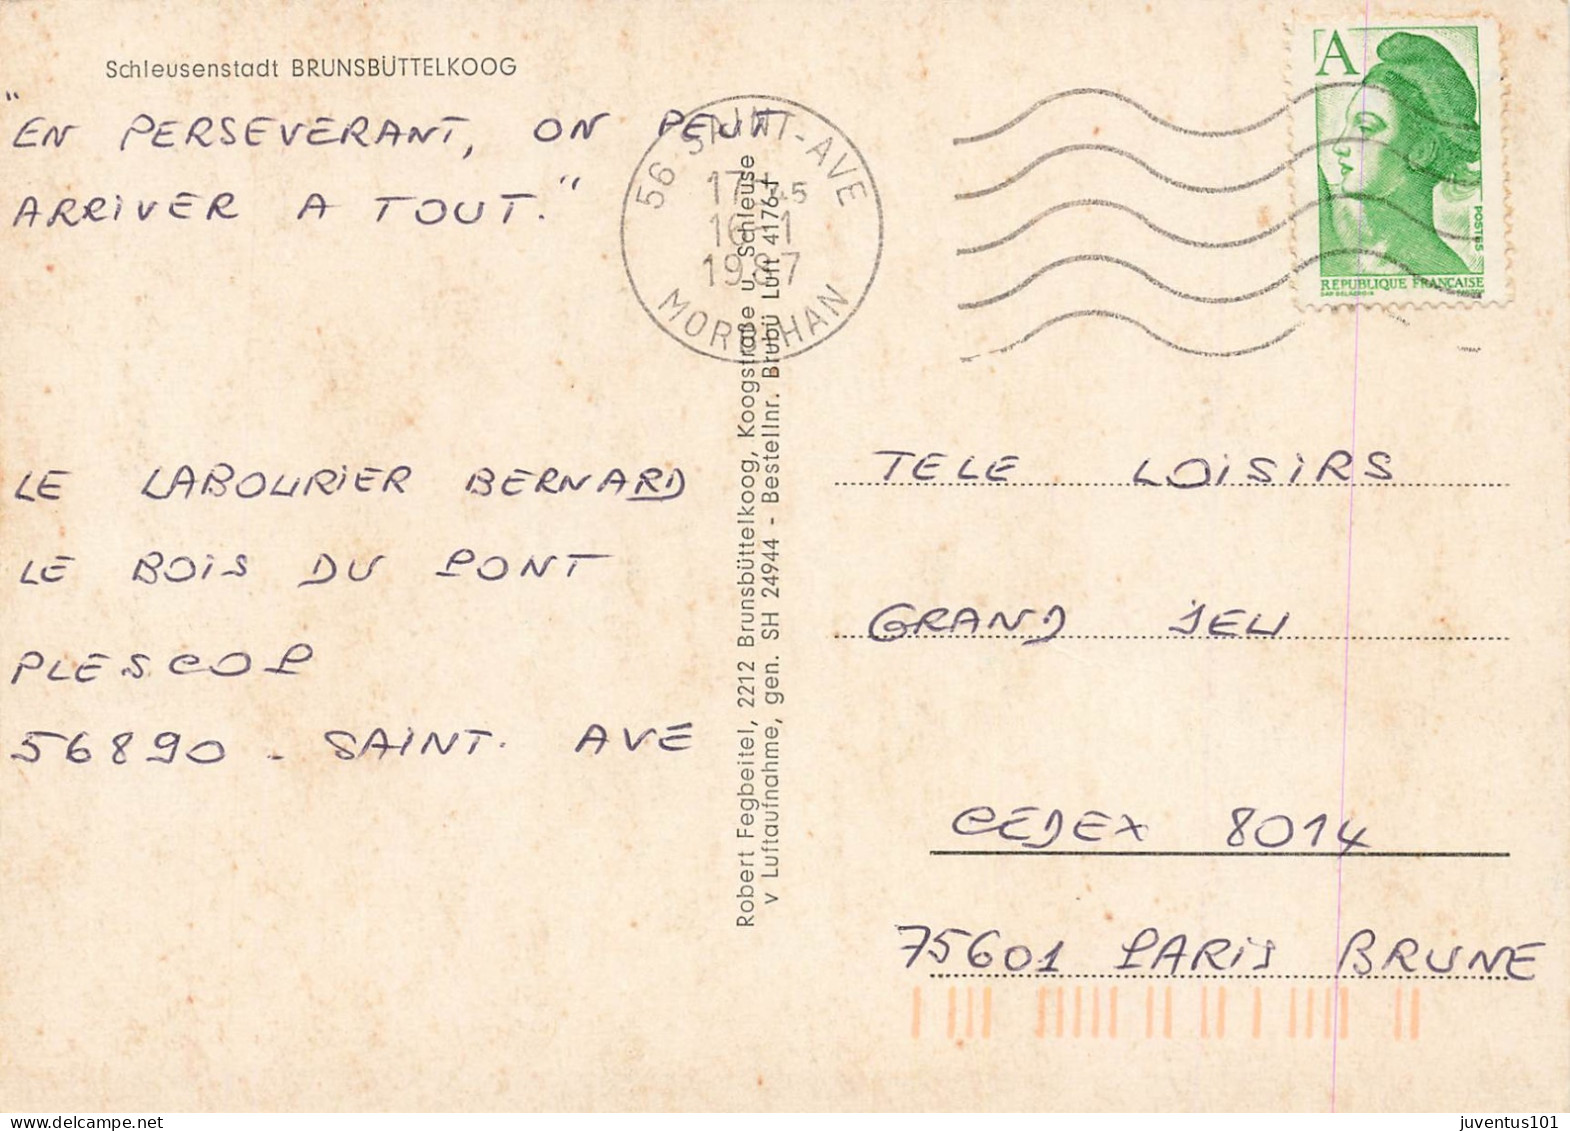 Schleusenstadt BRUNSBÜTTELKOOG
"EN PERSEVERANT, ON PEUT
ARRIVER A TOUT."
LE LABOURIER BERNARD
LE BOIS DU PONT
PLESCOP
56890 - SAINT. AVE
56 SAINT-AVE
17H45
16-1
1987
MORBIHAN
Robert Fegbeitel, 2212 Brunsbüttelkoog, Koogstraße u. Schleuse
v Luftaufnahme, gen. SH 24944 - Bestellnr. Brubü Luft 4176-F
A
POSTES
REPUBLIQUE FRANÇAISE
TELE LOISIRS
GRAND JEU
CEDEX 8014
75601 PARIS BRUNE
juventus101